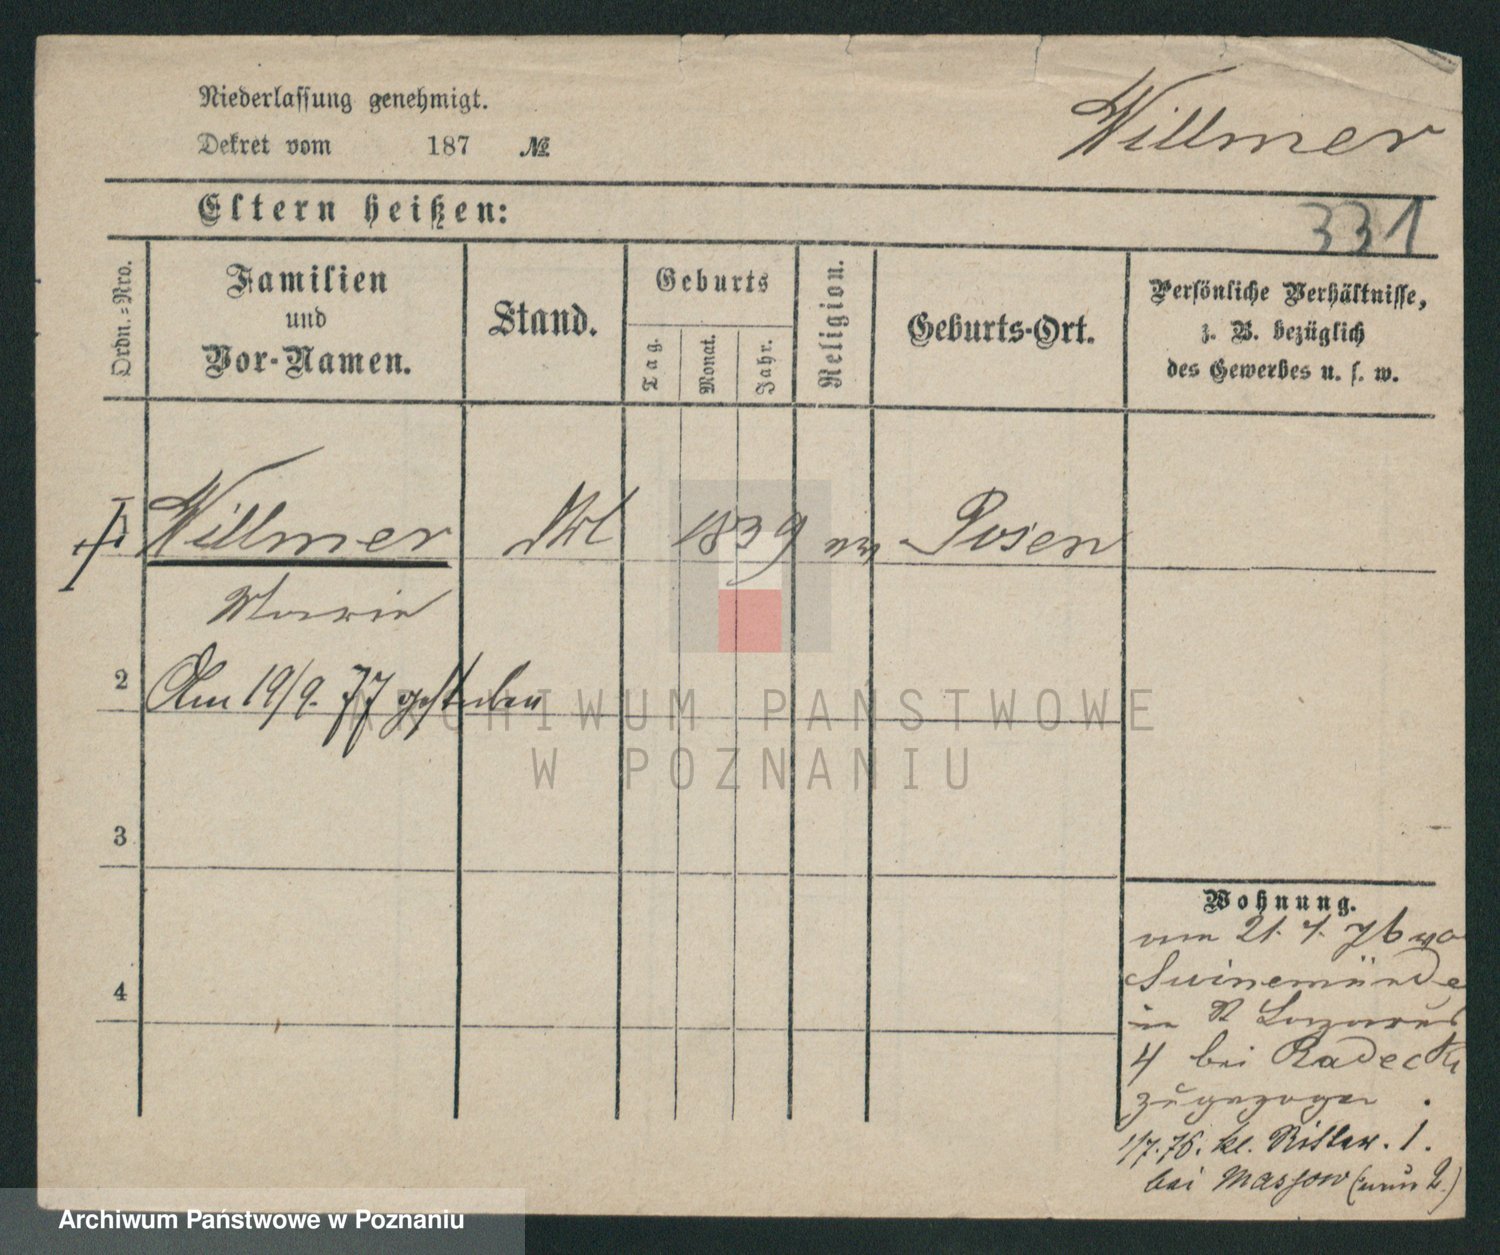 Niederlassung genehmigt.
Willmer
Dekret vom 187 №
Eltern heißen:
331
Ordn.-Nro.
Familien
und
Vor-Namen.
Stand.
Geburts
Tag.
Monat.
Jahr.
Religion.
Geburts-Ort.
Persönliche Verhältnisse,
z. B. bezüglich
des Gewerbes u. s. w.
1 Willmer 1839 Posen
Marie
2 Am 19/9. 77 gestorben
3
4
Wohnung.
vom 21. 4. 76
Swinemünde
in St Lazarus
4 bei Radecki
zugezogen.
1/7. 76. kl. Ritterst. 1.
bei Massow
ARCHIWUM PAŃSTWOWE
W POZNANIU
Archiwum Państwowe w Poznaniu